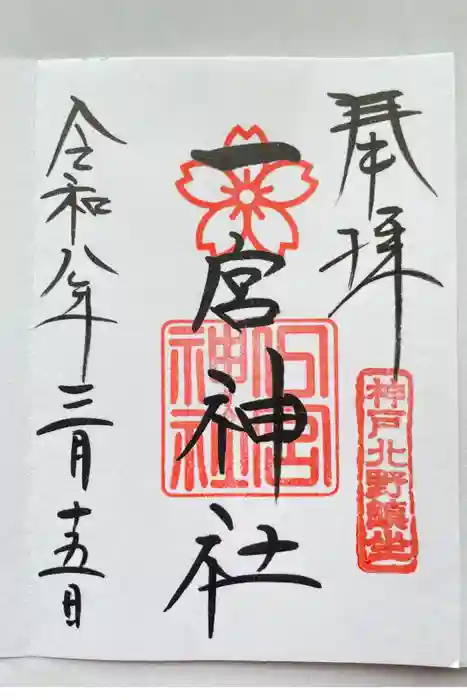 奉拝
神戸北野鎮坐
一宮神社
神社
令和八年三月十五日